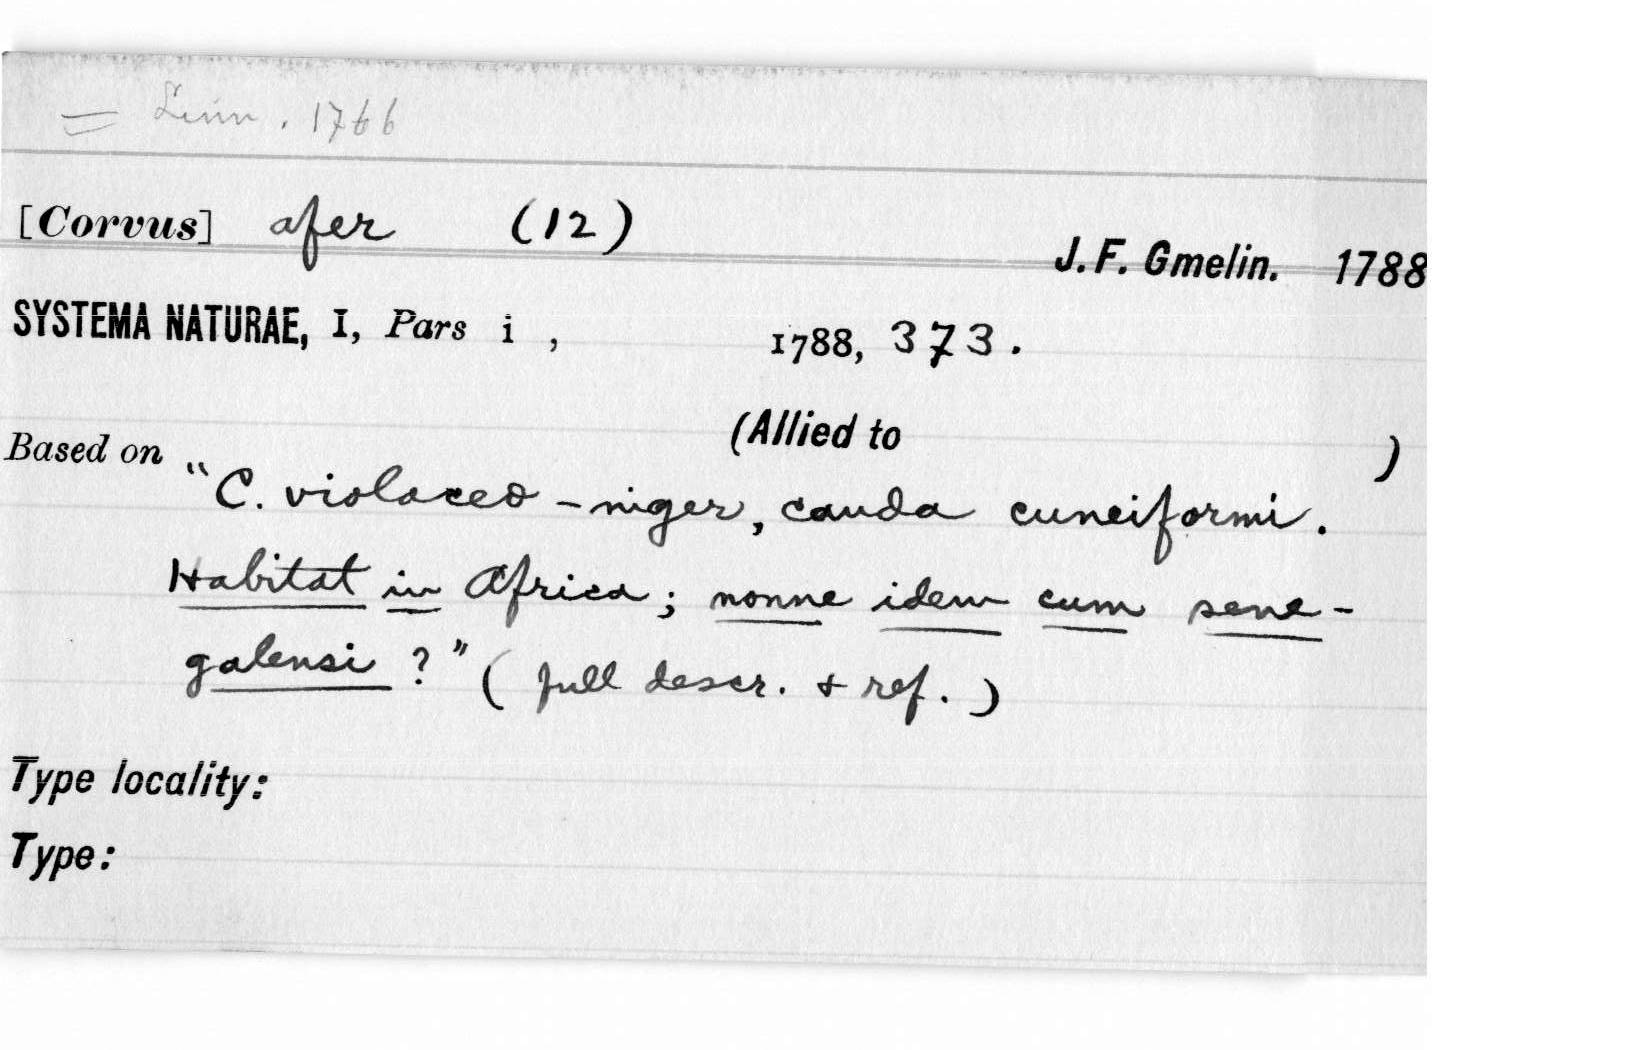 = Linn. 1766
[Corvus] afer (12)
J. F. Gmelin. 1788
SYSTEMA NATURAE, I, Pars i , 1788, 373.
(Allied to )
Based on
"C. violaceo-niger, cauda cuneiformi.
Habitat in Africa; nonne idem cum sene-
galensi ?" ( full descr. + ref. )
Type locality:
Type: